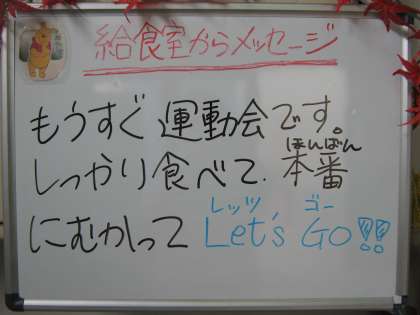 給食室からメッセージ
もうすぐ運動会です。
ほんばん
しっかり食べて、本番
レッツ ゴー
にむかって Let's GO!!